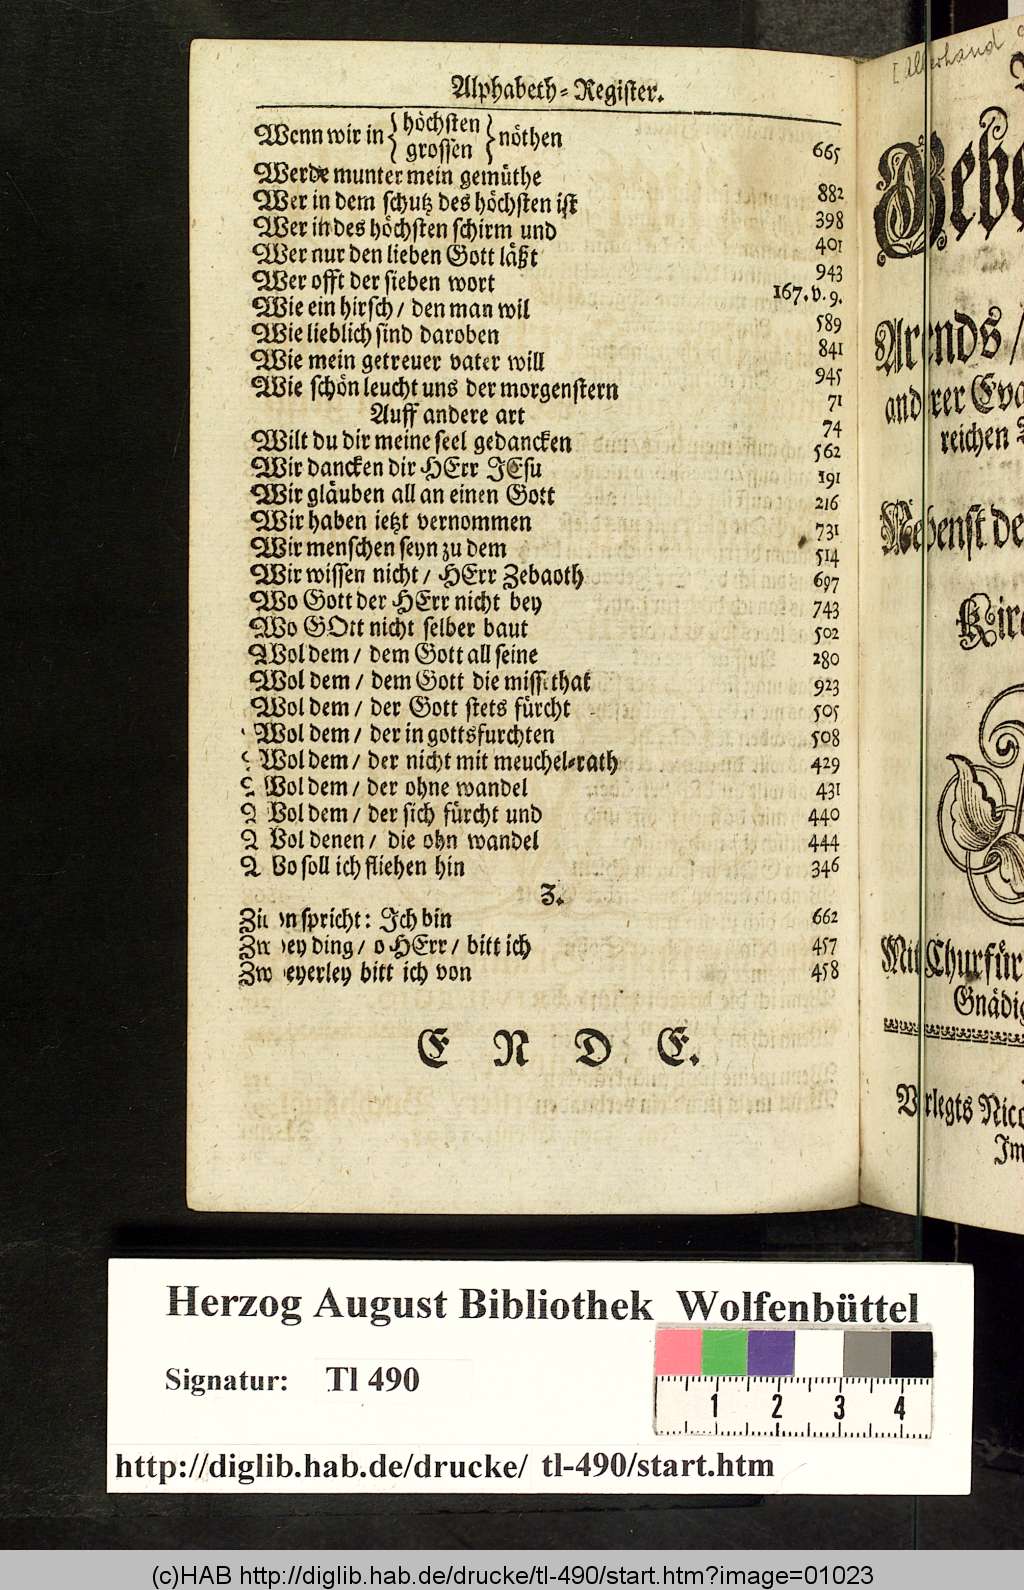 Alphabeth-Register.
Wenn wir in {höchsten / grossen} nöthen 665
Werde munter mein gemüthe 882
Wer in dem schutz des höchsten ist 398
Wer in des höchsten schirm und 401
Wer nur den lieben Gott läßt 943
Wer offt der sieben wort 167. v. 9.
Wie ein hirsch / den man wil 589
Wie lieblich sind daroben 841
Wie mein getreuer vater will 945
Wie schön leucht uns der morgenstern 71
Auff andere art 74
Wilt du dir meine seel gedancken 562
Wir dancken dir HErr JEsu 191
Wir gläuben all an einen Gott 216
Wir haben ietzt vernommen 731
Wir menschen seyn zu dem 514
Wir wissen nicht / HErr Zebaoth 697
Wo Gott der HErr nicht bey 743
Wo GOtt nicht selber baut 502
Wol dem / dem Gott all seine 280
Wol dem / dem Gott die missethat 923
Wol dem / der Gott stets fürcht 505
Wol dem / der in gottsfurchten 508
Wol dem / der nicht mit meuchel-rath 429
Wol dem / der ohne wandel 431
Wol dem / der sich fürcht und 440
Wol denen / die ohn wandel 444
Wo soll ich fliehen hin 346
Z.
Zion spricht: Ich bin 662
Zwey ding / o HErr / bitt ich 457
Zweyerley bitt ich von 458
E N D E.
[Allerhand
Arends /
anderer Eva
reichen
Nebenst de
Kir
Mit Churfür
Gnädig
Verlegts Nico
Im
Herzog August Bibliothek Wolfenbüttel
Signatur: Tl 490
1 2 3 4
http://diglib.hab.de/drucke/ tl-490/start.htm
(c)HAB http://diglib.hab.de/drucke/tl-490/start.htm?image=01023